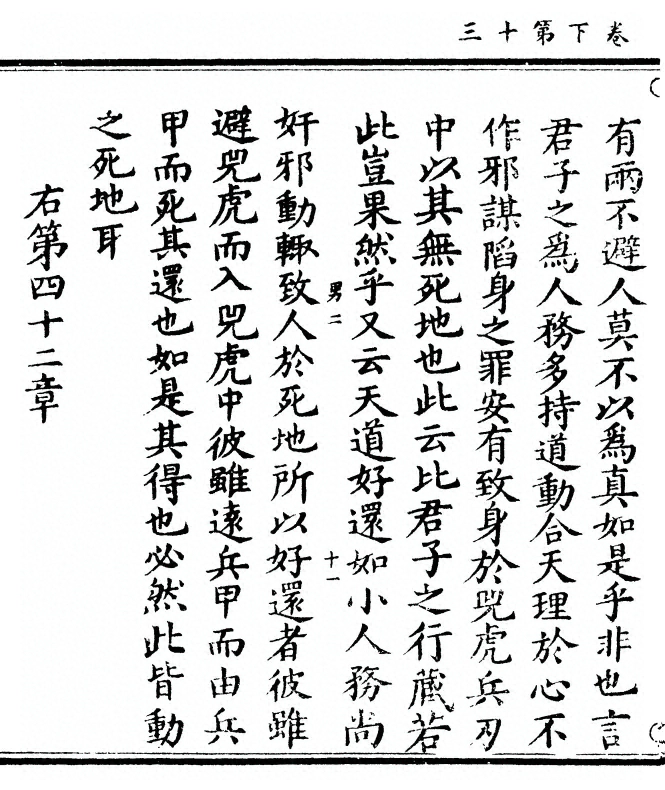 卷下第十三
有兩不避人莫不以爲真如是乎非也言
君子之爲人務多持道動合天理於心不
作邪謀陷身之罪安有致身於兕虎兵刃
中以其無死地也此云比君子之行藏若
此豈果然乎又云天道好還如小人務尚
男二
十一
奸邪動輙致人於死地所以好還者彼雖
避兕虎而入兕虎中彼雖遠兵甲而由兵
甲而死其還也如是其得也必然此皆動
之死地耳
右第四十二章